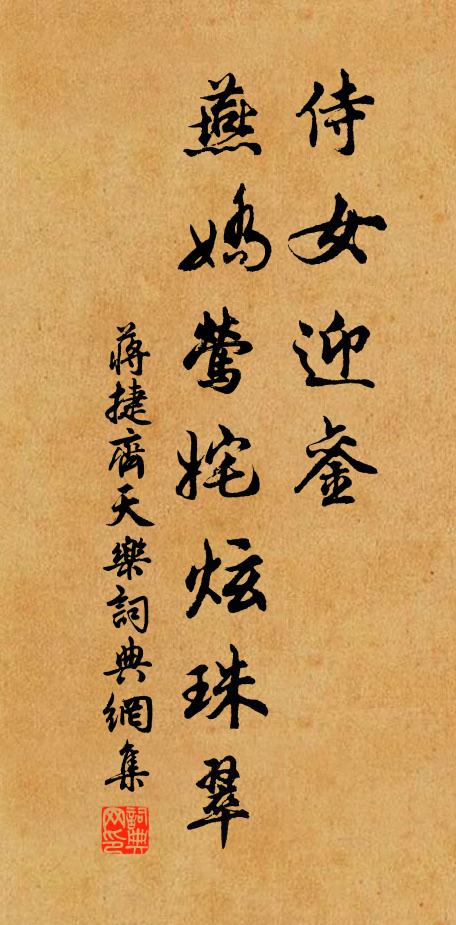 侍女迎銮
燕嬌鶯姹炫珠翠
蔣捷齊天樂詞典網集
詞典网印